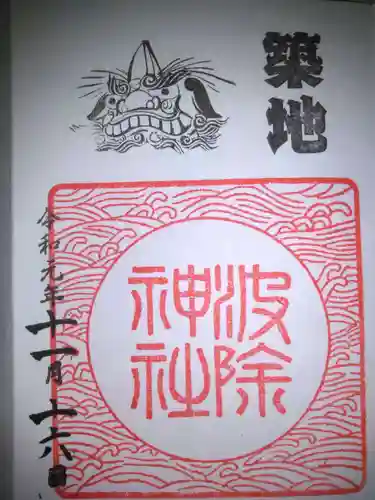 築地
波除
神社
令和元年十一月十六日